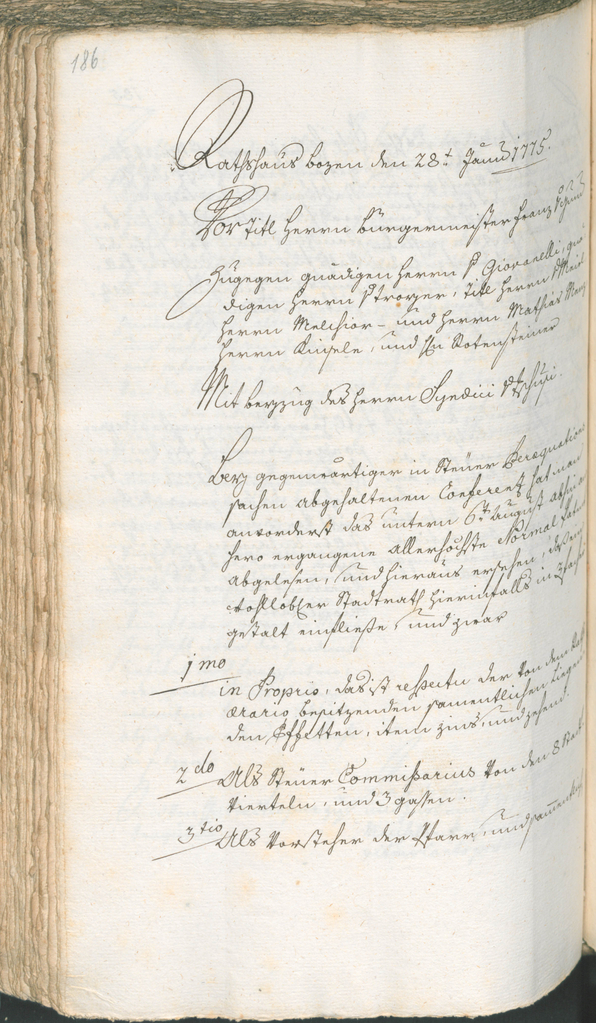 186
Rathshaus bozen den 28t Junii 1775.
Vor Titl herrn burgermeister Franz
Zugegen gnädigen herrn v Giovanelli, gnä
digen herrn v troyer, Titl herrn v
herrn Melchior- und herrn Mathias
herrn Kinsele, und Hn Rotensteiner
Mit beyzug des herrn Syndici v
Bey gegenwärtiger in Steuer Peraequations
sachen abgehaltenen Conferenz hat man
anvorderst das unterm 6t August
hero ergangene allerhöchste Normal
abgelesen, und hieraus ersehen, daß ein
wohllobler Stadtrath hierinfalls in 3facher
gestalt einfließe, und zwar
1mo
in Proprio, das ist respectu der von dem
aerario besitzenden samentlichen liegen
den Effetten, item zins, und zehend.
2do Als Steuer Commissarius von den 8 Stadt
vierteln, und 3 gassen.
3tio Als Vorsteher der Pfarr, und